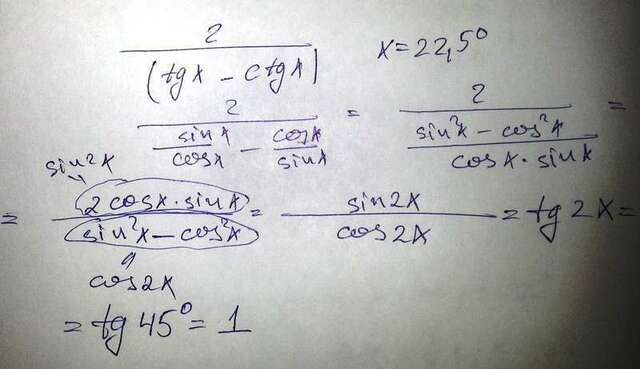 2/(tgx - ctgx) x=22,5°
2/(sinx/cosx - cosx/sinx) = 2/((sin²x - cos²x)/(cosx·sinx)) =
sin2x
= (2cosx·sinx)/(sin²x - cos²x) = sin2x/cos2x = tg2x =
cos2x
= tg45° = 1